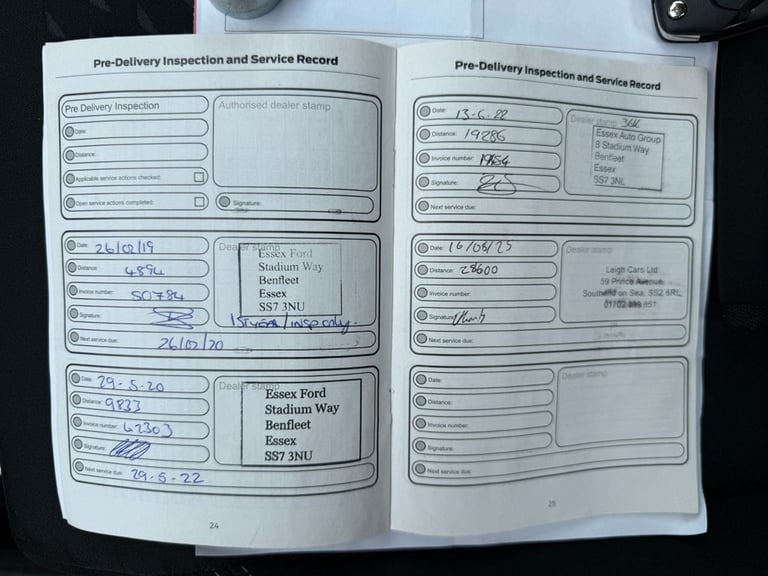 Pre-Delivery Inspection and Service Record
Pre Delivery Inspection
Date:
Distance:
Applicable service actions checked:
Open service actions completed:
Authorised dealer stamp
Signature:
Date: 26/02/19
Distance: 4894
Invoice number: 50784
Signature:
Next service due: 26/02/20
Dealer stamp
Essex Ford
Stadium Way
Benfleet
Essex
SS7 3NU
1st year/insp only.
Date: 29-5-20
Distance: 9833
Invoice number: 62303
Signature:
Next service due: 29-5-22
Dealer stamp
Essex Ford
Stadium Way
Benfleet
Essex
SS7 3NU
24
Pre-Delivery Inspection and Service Record
Date: 13-6-22
Distance: 19286
Invoice number:
Signature:
Next service due:
Dealer stamp 36K
Essex Auto Group
8 Stadium Way
Benfleet
Essex
SS7 3NL
Date: 16/06/25
Distance: 28600
Invoice number:
Signature:
Next service due:
Dealer stamp
Leigh Cars Ltd
59 Prince Avenue
Southend on Sea, SS2 6RL
01702 851
Date:
Distance:
Invoice number:
Signature:
Next service due:
Dealer stamp
25